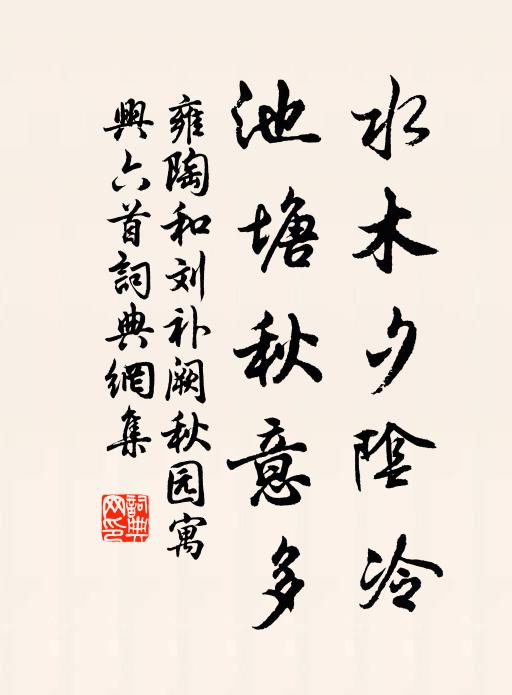 水木夕陰冷
池塘秋意多
雍陶和刘补阙秋园寓
興六首詞典網集
詞典
网印